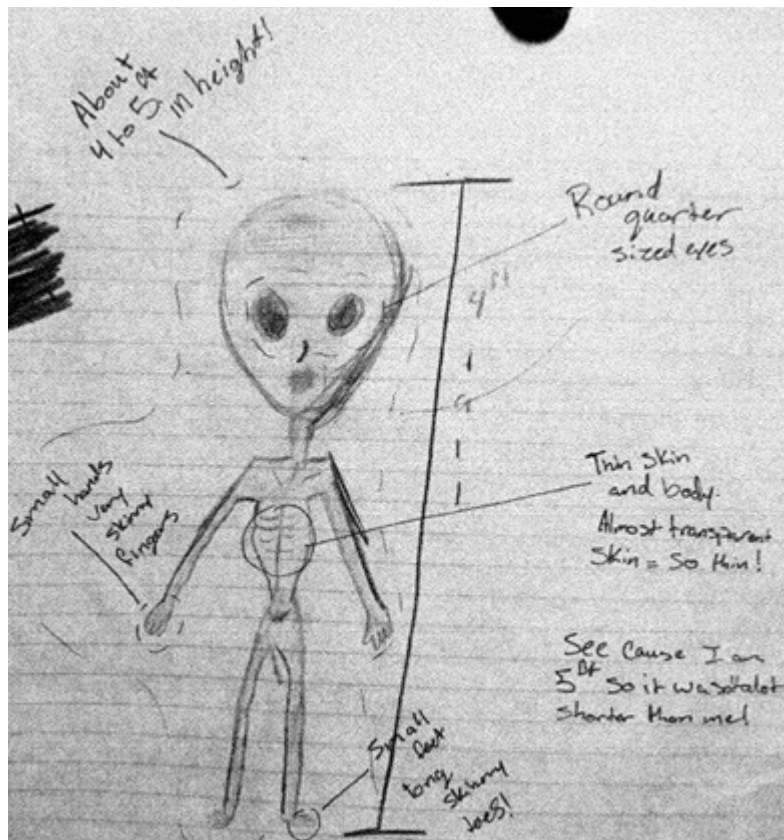 About
4 to 5 ft
in height!
Round
quarter
sized eyes
4 ft
Small
hands
very
skinny
fingers
Thin skin
and body.
Almost transparent
Skin = So thin!
See cause I am
5 ft so it was
shorter than me!
Small
feet
long
skinny
toes!